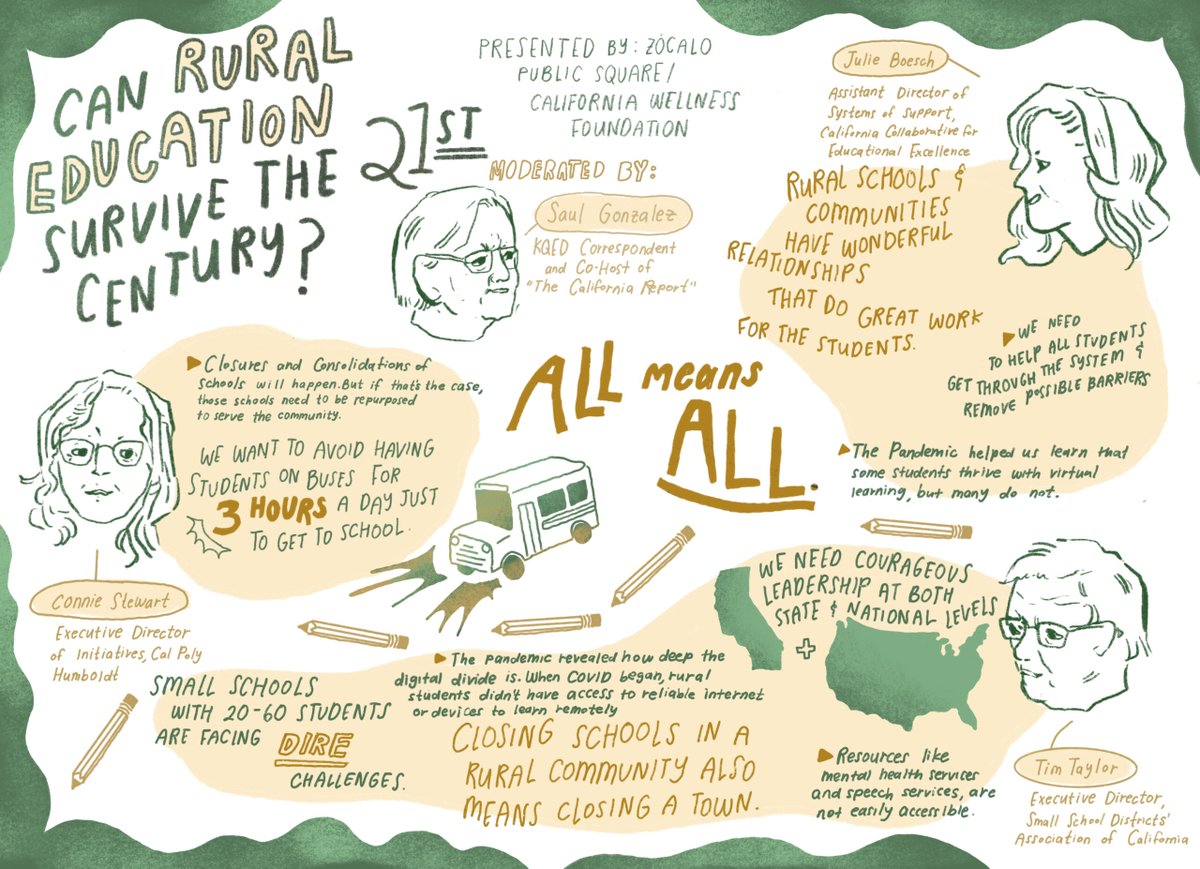 CAN RURAL
EDUCATION
SURVIVE THE 21ST
CENTURY?
PRESENTED BY: ZÓCALO
PUBLIC SQUARE/
CALIFORNIA WELLNESS
FOUNDATION
MODERATED BY:
Saul Gonzalez
KQED Correspondent
and Co-Host of
"The California Report"
Julie Boesch
Assistant Director of
Systems of Support,
California Collaborative for
Educational Excellence
RURAL SCHOOLS &
COMMUNITIES
HAVE WONDERFUL
RELATIONSHIPS
THAT DO GREAT WORK
FOR THE STUDENTS.
WE NEED
TO HELP ALL STUDENTS
GET THROUGH THE SYSTEM &
REMOVE POSSIBLE BARRIERS
The Pandemic helped us learn that
some students thrive with virtual
learning, but many do not.
ALL means
ALL.
Closures and Consolidations of
schools will happen. But if that's the case,
those schools need to be repurposed
to serve the community.
WE WANT TO AVOID HAVING
STUDENTS ON BUSES FOR
3 HOURS A DAY JUST
TO GET TO SCHOOL.
Connie Stewart
Executive Director
of Initiatives, Cal Poly
Humboldt
SMALL SCHOOLS
WITH 20-60 STUDENTS
ARE FACING DIRE
CHALLENGES.
The pandemic revealed how deep the
digital divide is. When COVID began, rural
students didn't have access to reliable internet
or devices to learn remotely
CLOSING SCHOOLS IN A
RURAL COMMUNITY ALSO
MEANS CLOSING A TOWN.
WE NEED COURAGEOUS
LEADERSHIP AT BOTH
STATE & NATIONAL LEVELS
+
Resources like
mental health services
and speech services, are
not easily accessible.
Tim Taylor
Executive Director,
Small School Districts'
Association of California